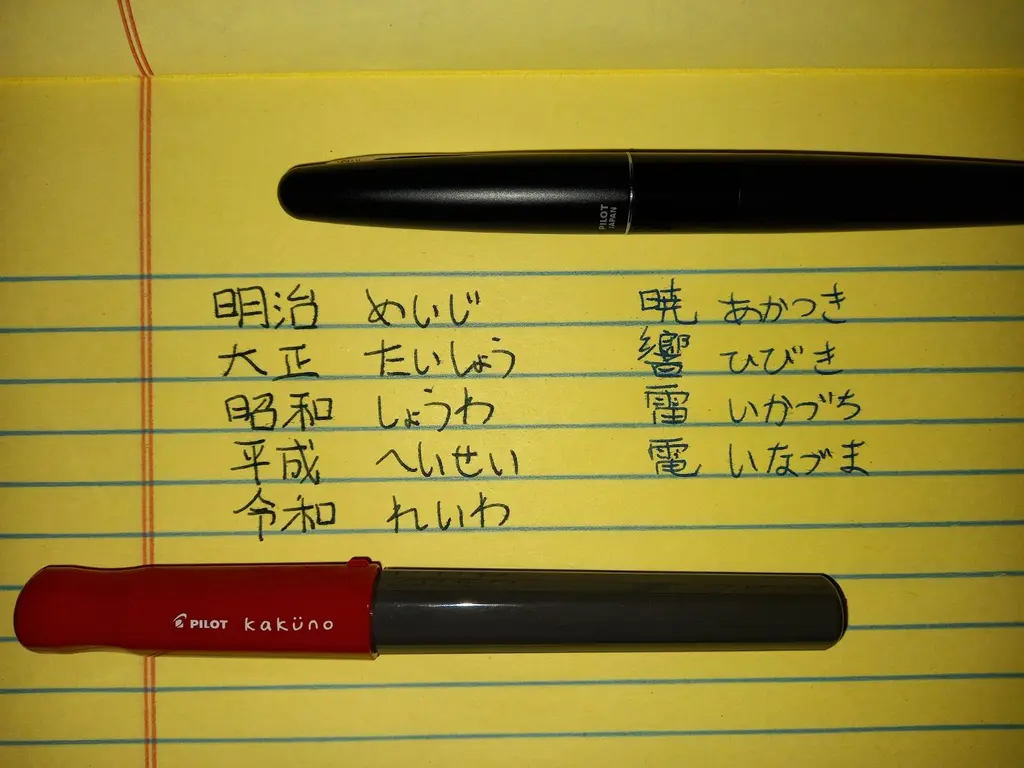 PILOT
JAPAN
明治 めいじ
大正 たいしょう
昭和 しょうわ
平成 へいせい
令和 れいわ
暁 あかつき
響 ひびき
雷 いかづち
電 いなづま
PILOT kaküno